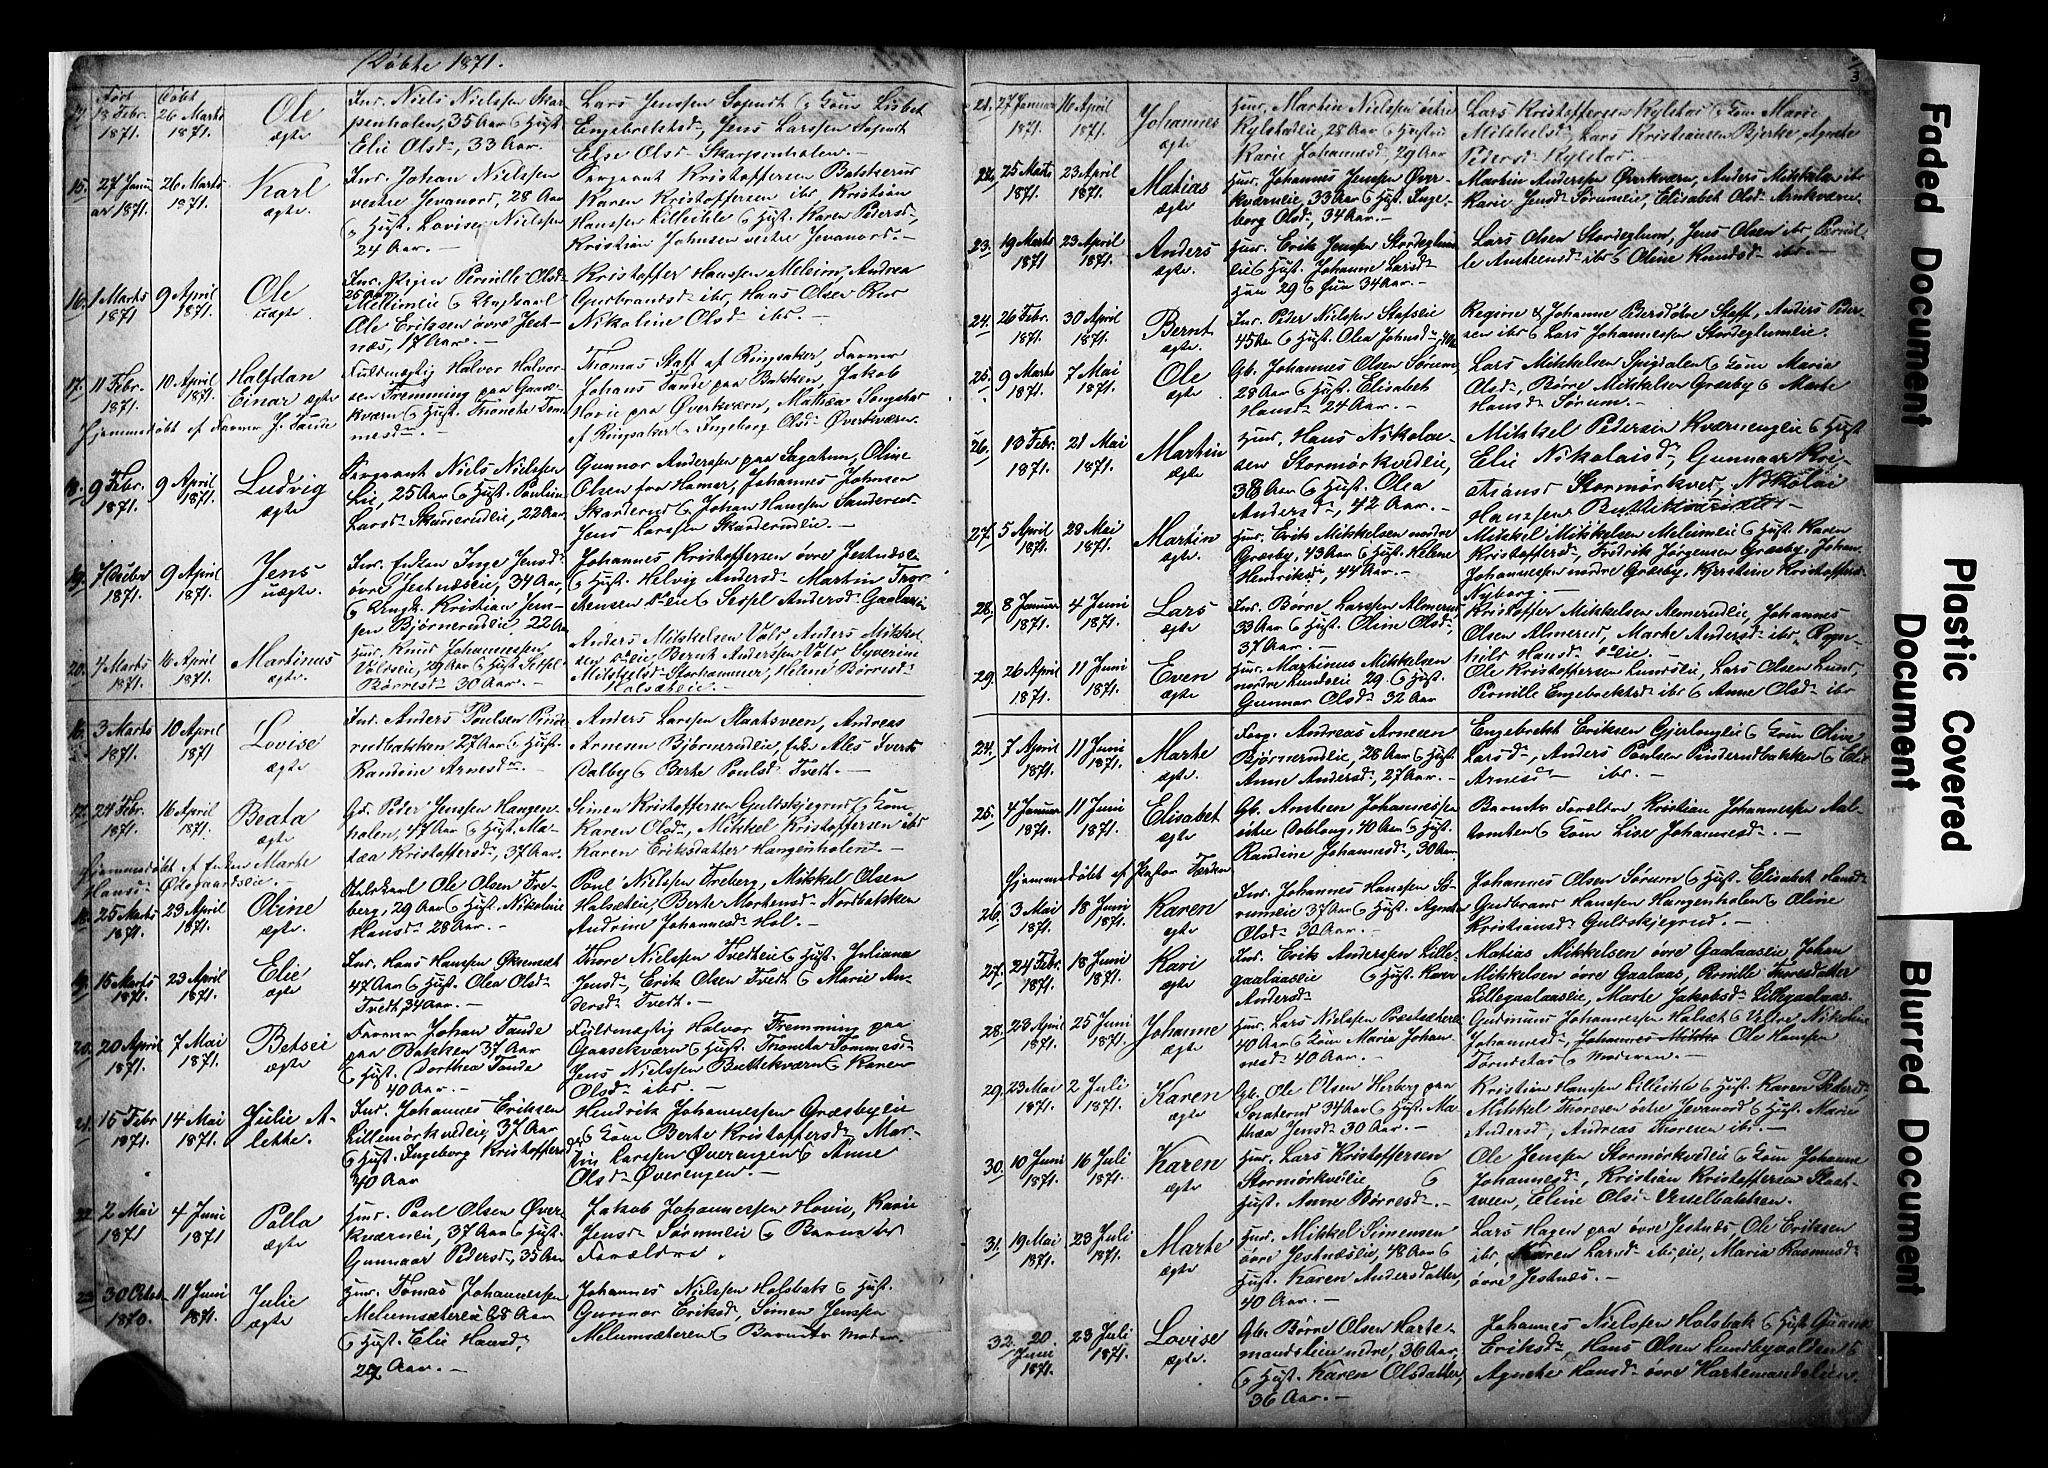 Døbte 1871.
Født Døbt
18 Febr. 1871. 26 Marts 1871. Ole ægte
Inr. Niels Nielsen Skar-
penholen, 35 Aar & Hust.
Elie Olsd., 33 Aar.
Lars Jenssen & Gom Lisbet
Engebretsd., Jens Larssen
Else Olsd. Skarpenholen.
15. 27 Janu-
ar 1871. 26 Marts 1871. Karl ægte.
Inr. Johan Nielssen
vestre Jevanord, 28 Aar
& Hust. Lovise Nielssen
24 Aar.
Sergeant Kristoffersen
Karen Kristoffersen ibr. Kristian
Hanssen Lilleihle & Hust. Karen Pedersd.,
Kristian Johnsen vestre Jevanord.
16. 1 Marts 1871 9 April 1871. Ole uægte
Inr. Pigen Pernille Olsd.
25 Aar
Melumeie & Ungkarl
Ole Erikssen øvre Jest-
næs, 17 Aar.
Kristoffer Hanssen Meleim, Andrea
Gudbrandsd. ibr., Hans Olsen
Nikoline Olsd. ibr.
17. 11 Febr. 1871. 10 April 1871. Halfdan
Einar ægte
Fuldmægtig Halvor Halvor-
sen Fremming paa Gaase-
kværn & Hust. Thonette Tom-
mesd.
Hjemmedøbt af Farmer J. Tande
Thomas Staff af Ringsaker, Farmer
Johans Tande paa Bakken, Jakob
Hovie paa Øverkværn, Mathea
af Ringsaker, Ingeborg Olsd. Øverkværn.
18. 9 Febr. 1871. 9 April 1871. Ludvig ægte
Sergeant Niels Nielssen
Lie, 25 Aar & Hust. Pauline
Larsd. Skarderudeie, 22 Aar
Gunnor Anderssen paa Sagatun, Oline
Olsen fra Hamar, Johannes Johnsen
Skarderud & Johan Hanssen Sanderud
Jens Larssen Skarderudeie.
19. 7 1871. 9 April 1871. Jens uægte
Inr. Enken Inge Jensd.
øvre Jestnæseie, 34 Aar,
& Ungk. Kristian Jen-
sen Bjørnerudeie, 22 Aar
Johannes Kristoffersen øvre Jestnæseie
& Hust. Helvig Andersd., Martin Tror-
Sessel Andersd.
20. 7 Marts 1871. 16 April 1871. Martinus ægte.
Hur. Knud Johannessen,
Volseie, 29 Aar & Hust.
Børresd. 30 Aar.
Anders Mikkelsen Vols, Anders Mikkel-
sen Bernt Anderssen Vols, Syverine
Mikkelsd. Storhammer, Helene Børresd.
Halsæteie.
16. 3 Marts 1871. 10 April 1871 Lovise ægte
Inr. Anders Poulsen Pinde-
rudbakken 27 Aar & Hust.
Randine Arnesd.
Anders Larssen Slaatsveen, Andreas
Arnesen Bjørnerudeie, Enke Ales Iverts.
Dalby & Berte Poulsd. Tvedt.
17. 24 Febr. 1871. 16 April 1871. Beata ægte
Gd. Peder Jenssen Hangen-
holen, 47 Aar & Hust. Ma-
tea Kristoffersd., 37 Aar.
Hjemmedøbt af Enken Marte
Hansd. Ødegaardseie.
Simen Kristoffersen Guldskjegrud & Gom
Karen Olsd., Mikkel Kristoffersen ibr.
Karen Eriksdatter Hangenholen.
18. 25 Marts 1871. 23 April 1871. Oline ægte.
Ole Olsen Fre-
berg, 29 Aar & Hust. Nikoline
Hansd. 28 Aar.
Paul Nielssen Freberg, Mikkel Olsen
Halsæteie, Berte Mortensd. Nordbakken
Andrine Johannesd. Hol.
19. 15 Marts 1871. 23 April 1871. Elie ægte
Inr. Hans Hanssen
42 Aar & Hust. Olea Olsd.
Tvedt, 34 Aar.
Thore Nielssen Tvedteie & Hust. Juliana
Jensd., Erik Olsen Tvedt & Marie An-
dersd. Tvedt.
20. 20 April 1871. 7 Mai 1871. Betsei ægte
Farmer Johan Tande
paa Bakken 37 Aar
& Hust. Dorthea Tande
40 Aar.
Fuldmægtig Halvor Fremming paa
Gaasekværn & Hust. Thoneta Tommesd.
Jens Nielssen Buttekværn & Karen
Olsd. ibr.
21. 15 Febr 1871. 14 Mai 1871. Julie A-
lette.
Inr. Johannes Eriksen
Lillemørkvedeie 37 Aar
& Hust. Ingeborg Kristoffersd.
40 Aar
Hendrik Johannessen Græsbyeie
& Gom Berte Kristoffersd., Mar-
tin Larssen Øverengen & Anne
Olsd. Øverengen.
22. 2 Mai 1871 4 Juni 1871 Palla ægte
Hur. Paul Olsen Øver-
kværneie, 37 Aar & Hust.
Gunnaar Pedersd., 35 Aar
Jakob Johannessen Hovie, Karie
Jensd. Sørumeie & Barnets
Forældre.
23. 30 Octob. 1870. 11 Juni 1871. Julie ægte
Hur. Tomas Johannessen
Melumsæterie Aar
& Hust. Elie Hansd.,
27 Aar.
Johannes Nielssen Holsbak & Hust.
Gunnor Eriksd., Simen Jenssen
Melumsæteren & Barnets Moder.
21. 27 Januar 1871. 16 April 1871. Johannes ægte
Hur. Martin Nielssen østre
Kylstadeie, 28 Aar & Hustru
Karie Johannesd., 29 Aar
Lars Kristoffersen Kylstad & Gom Marie
Mikkelsd., Lars Kristianssen Bjerke, Agnete
Pedersd. Kylstad.
22. 25 Marts 1871. 23 April 1871. Matias ægte
Hur. Johannes Jenssen Øver-
kværneie, 33 Aar & Hust. Inge-
borg Olsd., 34 Aar.
Martin Anderssen Øverkværn, Anders Mikkelsen ibr.
Karie Jensd. Sørumeie, Elisabet Olsd. Arnkværn.
23. 19 Marts 1871 23 April 1871. Anders ægte
Hur. Erik Jenssen Stordeglum-
eie & Hust. Johanne Larsd.
Han 29 & Hun 34 Aar.
Lars Olsen Stordeglum, Jens Olsen ibr. Pernil-
le Amteensd. ibr. & Oline Knudsd. ibr.
24. 26 Febr. 1871. 30 April 1871. Bernt ægte
Inr. Peder Nielssen Stafseie
45 Aar & Hust. Olea Johnsd.,
Regine & Johanne Pedersdøtre Staff, Anders Peder-
sen ibr. & Lars Johannessen Stordeglumeie.
25. 9 Marts 1871. 7 Mai 1871. Ole ægte
Gb. Johannes Olsen Sørum,
28 Aar & Hust. Elisabet
Hansd. 24 Aar.
Lars Mikkelsen Spigdalen & Gom Maria
Olsd., Børre Mikkelsen Græsby & Marte
Hansd. Sørum.
26. 13 Febr. 1871. 21 Mai 1871. Martin ægte
Hur. Hans Nikolai-
sen Stormørkvedeie,
38 Aar & Hust. Olea
Andersd., 42 Aar.
Mikkel Pedersen Kværnengeie & Hust
Elie Nikolaisd., Gunnaar Kri-
stiansd. Stormørkved, Nikolai
Hanssen
27. 5 April 1871. 28 Mai 1871. Martin ægte
Hur. Erik Mikkelsen nordre
Græsby, 43 Aar & Hust. Helene
Hendriksd., 44 Aar.
Mikkel Mikkelsen Meleimeie & Hust. Karen
Kristoffersd., Fredrik Jørgensen Græsby, Johan
Johannessen nordre Græsby, Kjerstine Kristoffersd.
Nyborg.
28. 8 Januar 1871. 4 Juni 1871. Lars ægte
Inr. Børre Larssen Almerud
33 Aar & Hust. Oline Olsd.,
37 Aar.
Kristoffer Mikkelsen Almerudeie, Johannes
Olsen Almerud, Marte Andersd. ibr., Ragn-
hild Hansd.
29. 26 April 1871. 11 Juni 1871. Even ægte
Hur. Martinus Mikkelsen
nordre Lundseie 29 & Hust.
Gunnor Olsd. 32 Aar
Ole Kristoffersen Lundseie, Lars Olsen Lund,
Pernille Engebrektsd. ibr. & Anne Olsd. ibr.
24. 7 April 1871. 11 Juni 1871. Marte ægte
Forp. Andreas Arnesen
Bjørnerudeie, 28 Aar & Hust.
Anne Andersd., 27 Aar.
Engebret Eriksen Gjerlougeie & Gom Oline
Larsd., Anders Poulsen Pinderudbakken & Elie
Arnesd. ibr.
25. 4 Januar 1871. 11 Juni 1871. Elisabet ægte
Gb. Amteen Johannessen
østre Doblong, 40 Aar & Hust.
Randine Johannesd., 30 Aar.
Hjemmedøbt af Pastor
Barnets Forældre Kristian Johannessen Aal-
stomten & Gom Lise Johannesd.
26. 3 Mai 1871. 18 Juni 1871. Karen ægte
Inr. Johannes Hanssen Sø-
rumeie 37 Aar & Hust. Agnete
Olsd. 30 Aar.
Johannes Olsen Sørum & Hust. Elisabet Hansd.
Gudbrand Hanssen Hangenholen & Oline
Kristiansd. Guldskjegrud.
27. 24 Febr. 1871. 18 Juni 1871. Kari ægte
Inr. Erik Anderssen Lille-
gaalaaseie & Hust. Karen
Andersd.
Matias Mikkelsen øvre Gaalaaseie, Johan
Mikkelsen øvre Gaalaas, Pernille Thoresdatter
Lillegaalaaseie, Marte Jakobsd. Lillegaalaas.
28. 23 April 1871. 25 Juni 1871. Johanne ægte
Hur. Lars Nielssen Præstsæterie
40 Aar & Gom Maria Johan-
nesd. 40 Aar.
Gudmund Johannessen Halsæt & Nikoline
Johannesd., Johannes Ole Hanssen
Tomdstad & Moderen.
29. 23 Mai 1871. 2 Juli 1871. Karen ægte
Gb. Ole Olsen Herberg paa
34 Aar & Hust. Ma-
thea Jensd. 30 Aar.
Kristian Hanssen Lilleihle & Hust. Karen Pedersd.,
Mikkel Thoresen østre Jevanord & Hust. Marie
Andersd., Andreas Thoresen ibr.
30. 10 Juni 1871. 16 Juli 1871. Karen ægte
Hur. Lars Kristoffersen
Stormørkvedeie &
Hust. Anne Børresd.
Ole Jenssen Stormørkvedeie & Gom Johanne
Johannesd., Kristian Kristoffersen Slaat-
sveen, Eline Olsd. Vesselbakken.
31. 19 Mai 1871. 23 Juli 1871. Marte ægte
Hur. Mikkel Simensen
øvre Jestnæseie, 48 Aar &
Hust. Karen Andersdatter,
40 Aar.
Lars Hagen paa øvre Jestnæs, Ole Eriksen
ibr. Karen Larsd. ibr. eie, Maria Rasmusd.
øvre Jestnæs.
32. 20 Juni 1871. 23 Juli 1871. Lovise ægte
Gb. Børre Olsen Harte-
mandslien nedre, 36 Aar,
& Hust. Karen Olsdatter,
36 Aar.
Johannes Nielssen Holsbak & Hust.
Eriksd., Hans Olsen Lundbyvolden &
Agnete Hansd. øvre Hartemandslien.
Faded Document
Plastic Covered
Document
Blurred Document